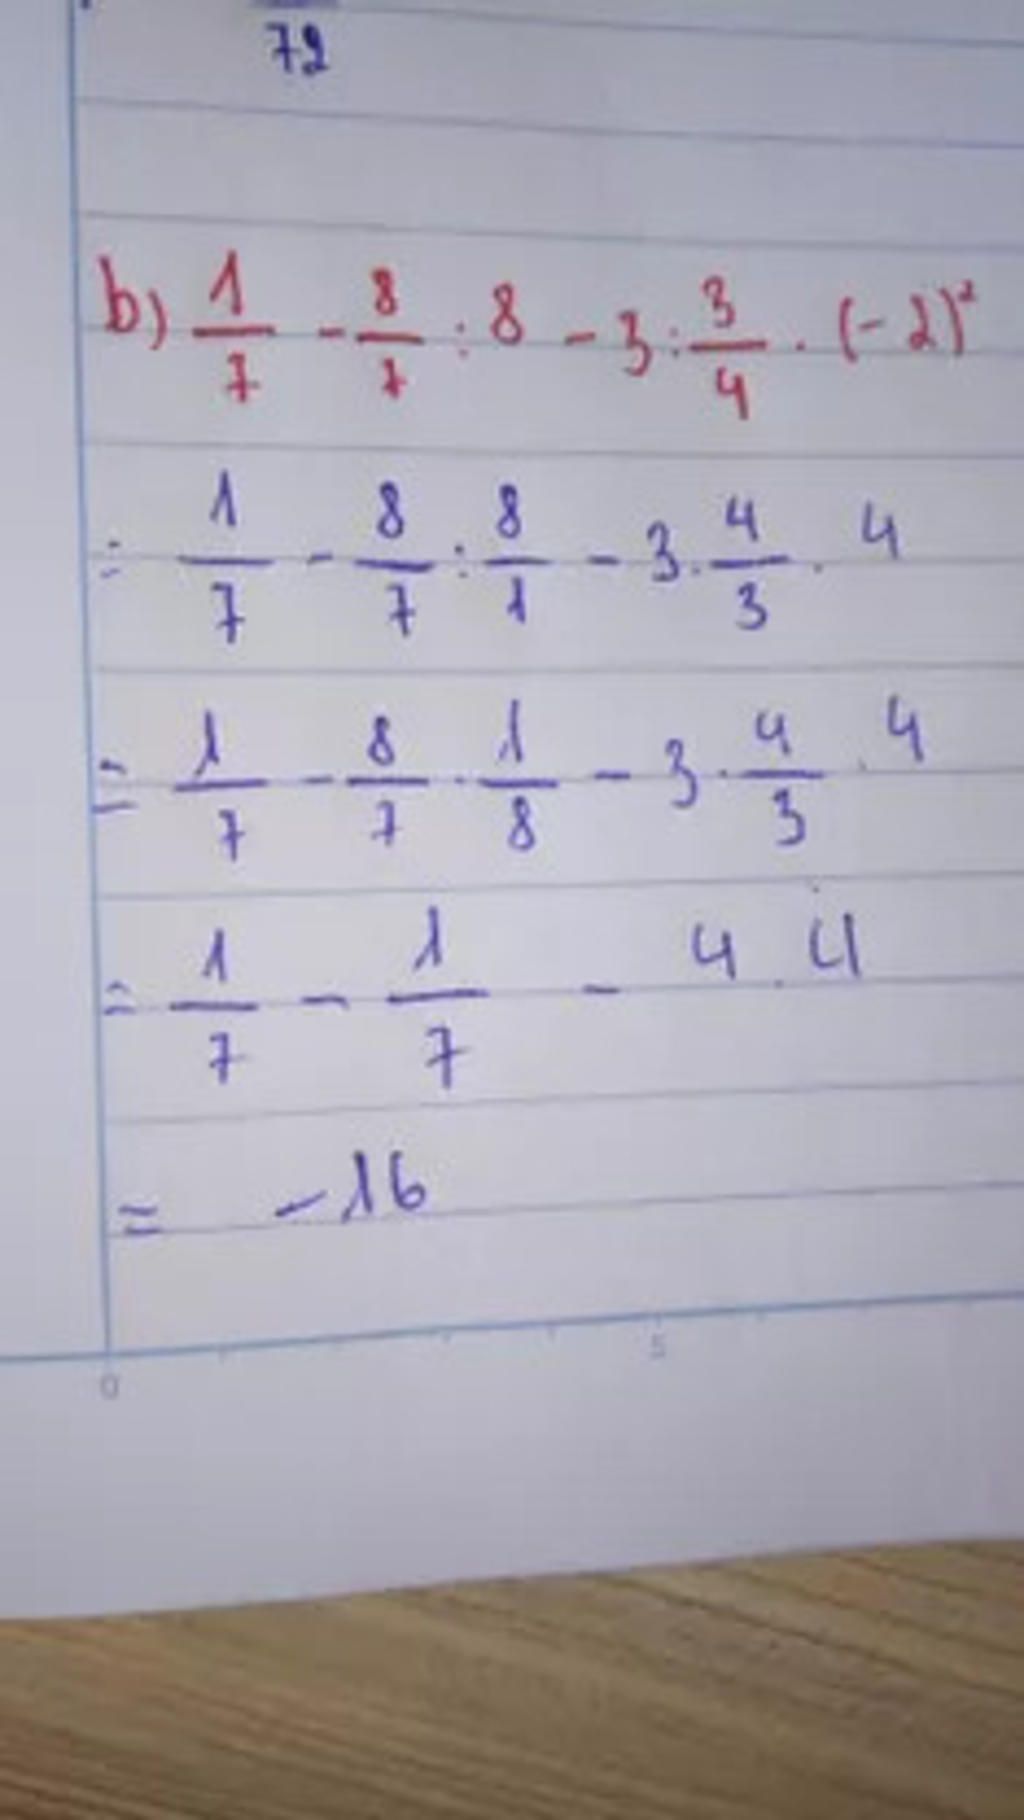 72
b) 1/7 - 8/7 : 8 - 3 : 3/4 . (-2)²
= 1/7 - 8/7 : 8/1 - 3 . 4/3 . 4
= 1/7 - 8/7 . 1/8 - 3 . 4/3 . 4
= 1/7 - 1/7 - 4 . 4
= -16
0 5